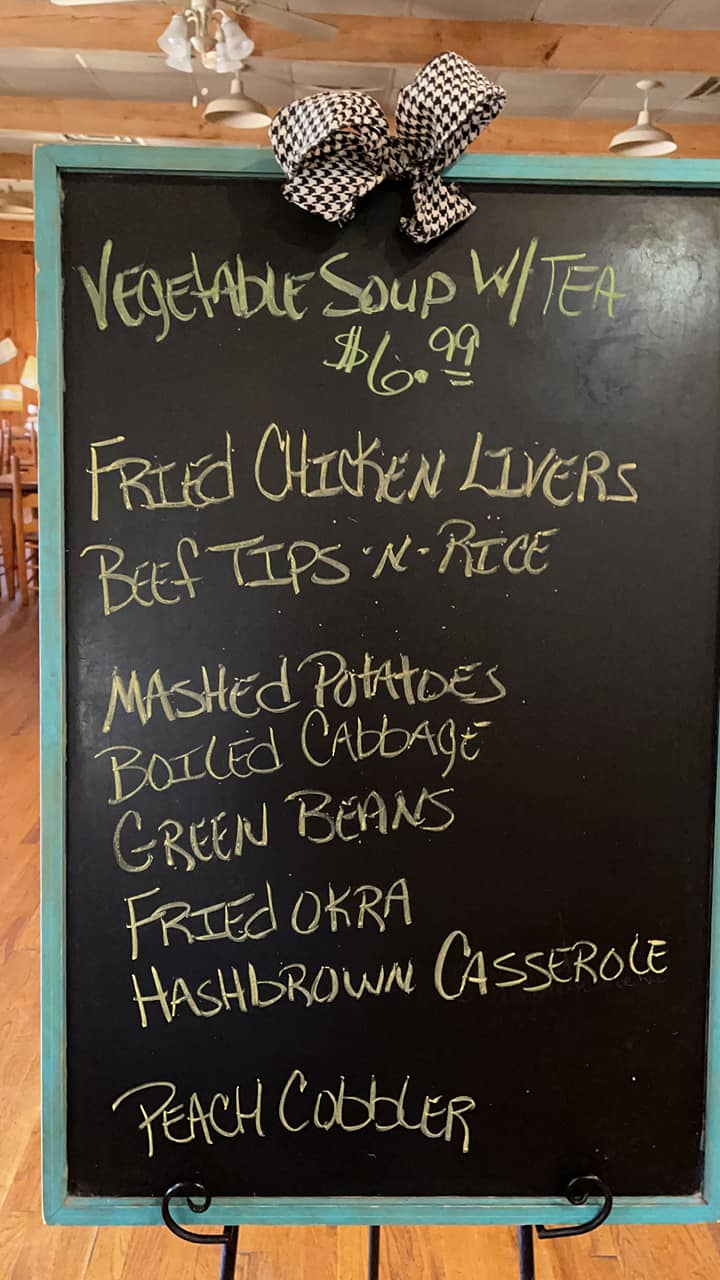 VEGETABLE SOUP W/ TEA
$6.99
FRIED CHICKEN LIVERS
BEEF TIPS -N- RICE
MASHED POTATOES
BOILED CABBAGE
GREEN BEANS
FRIED OKRA
HASHBROWN CASSEROLE
PEACH COBBLER